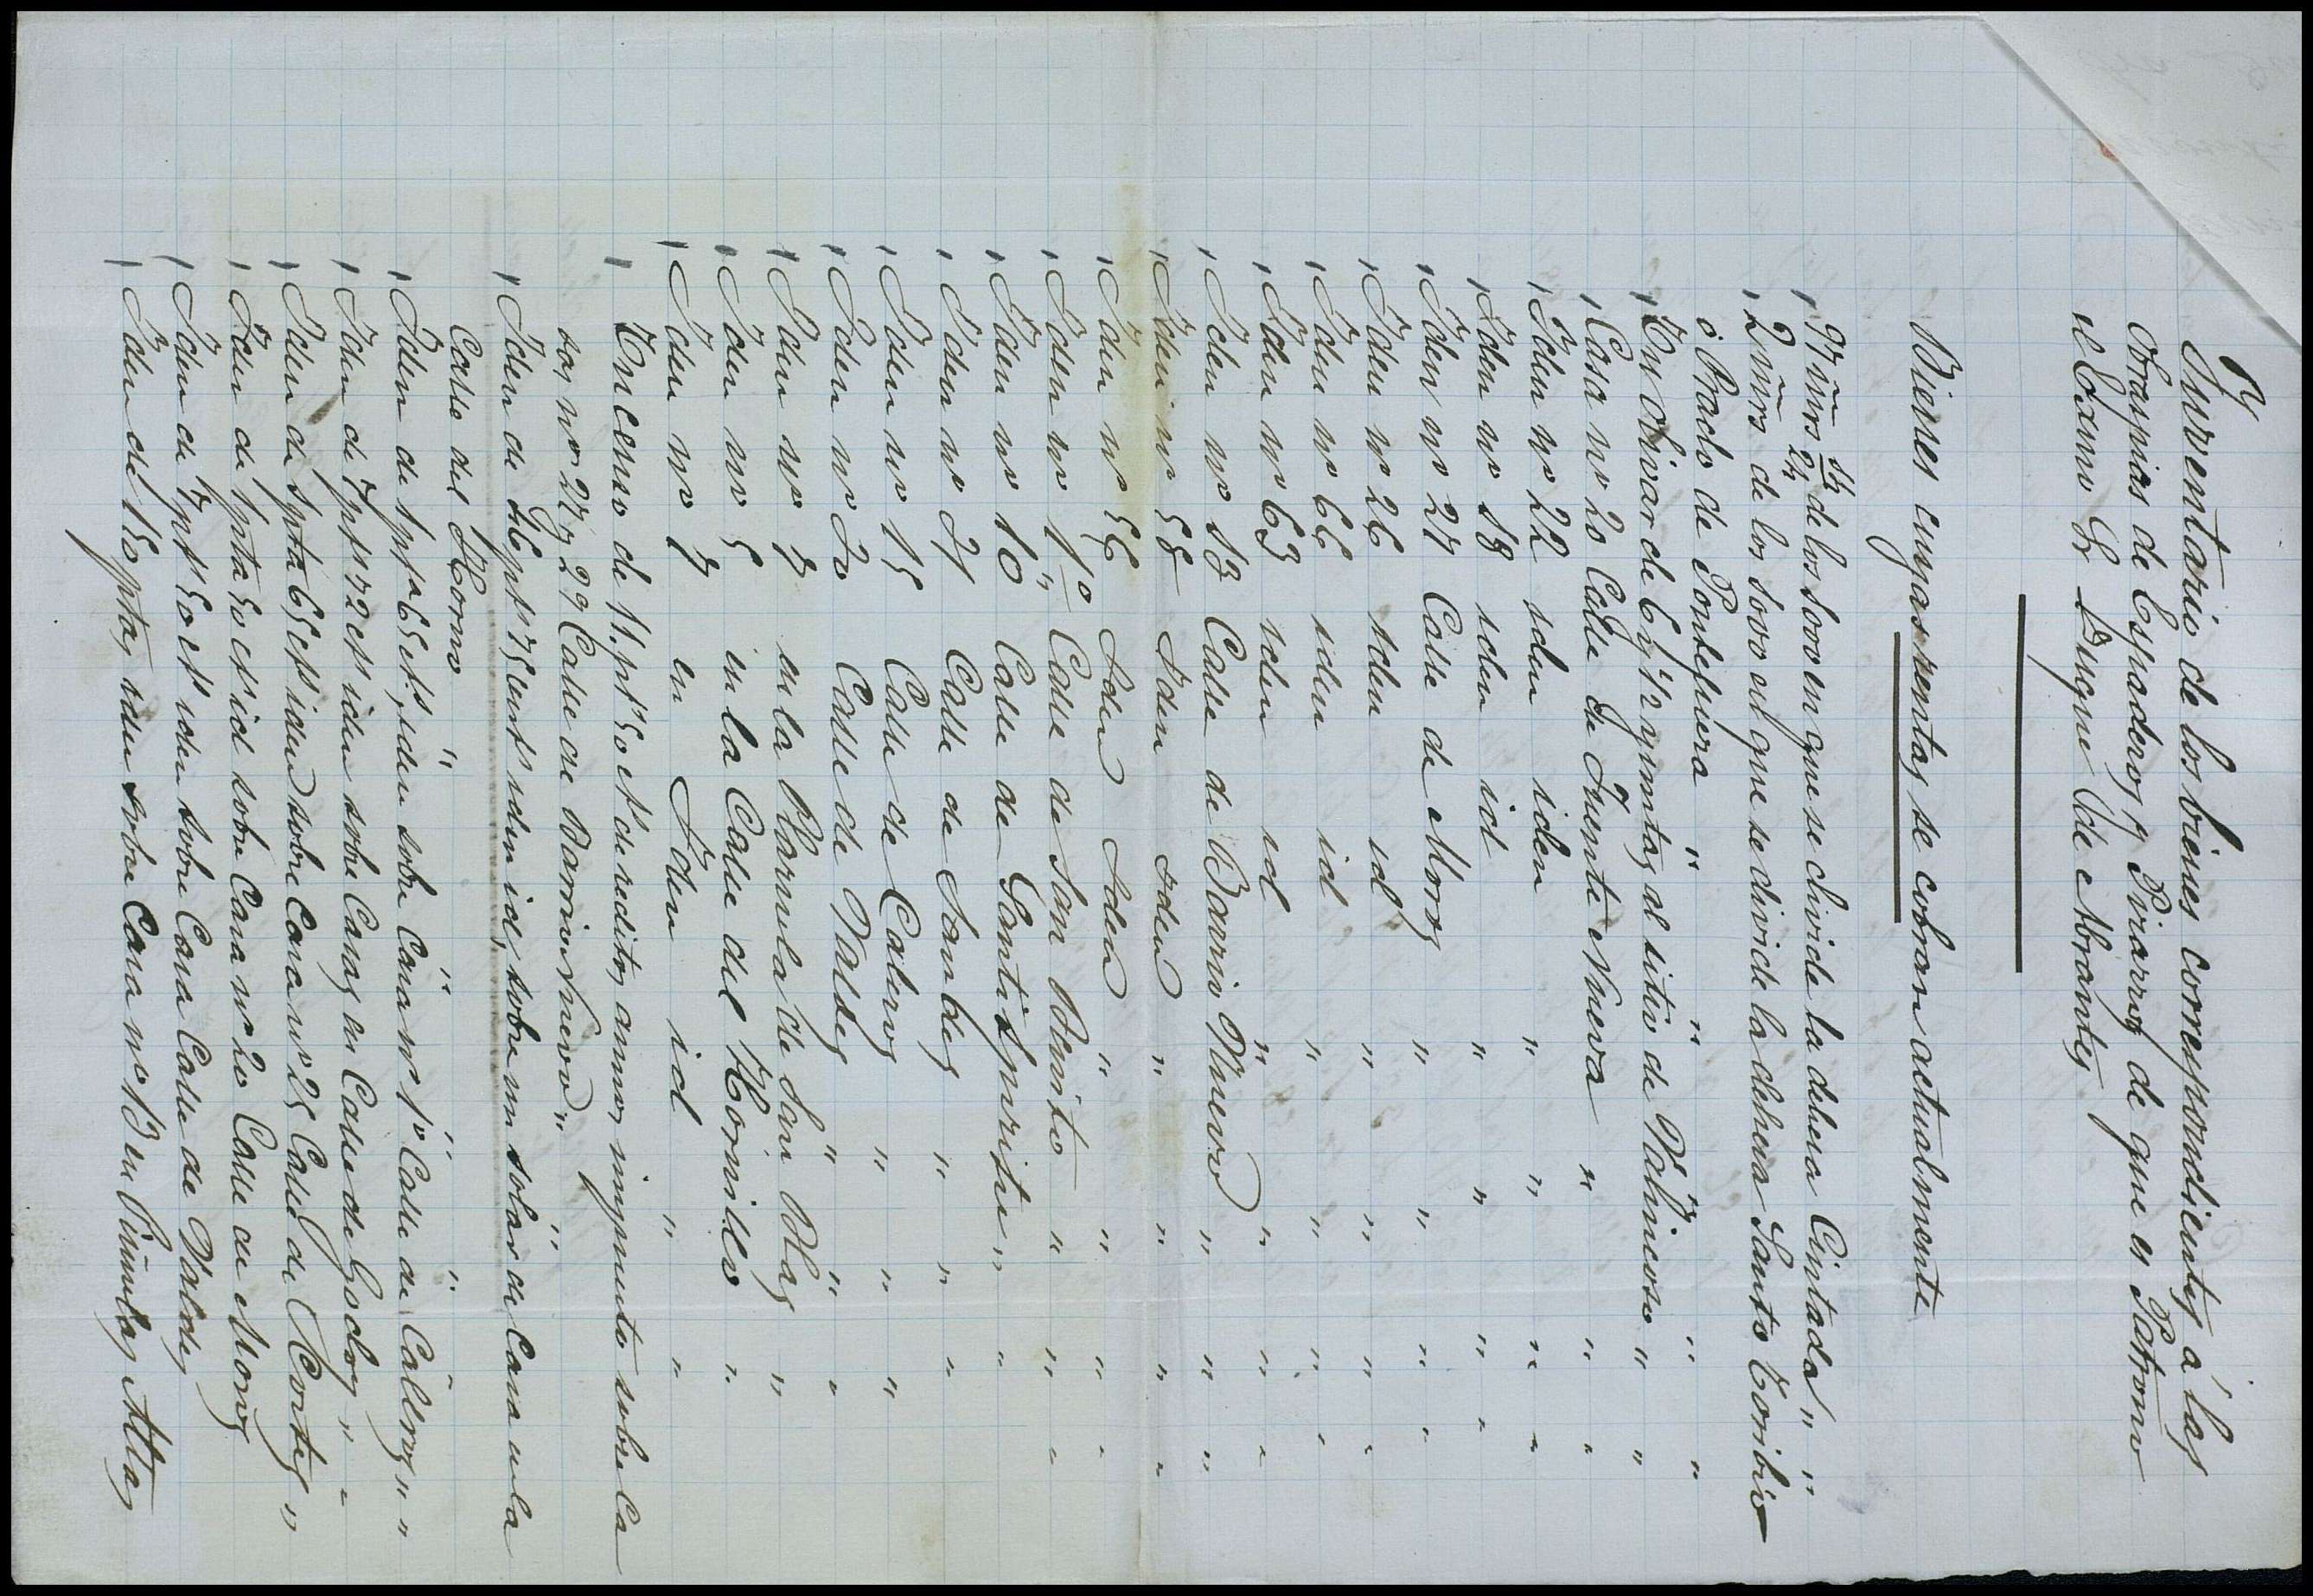 Inventario de los bienes correspondientes á las
Obraspias de Espaderos y Pizarros de que es Patrono
el Excmo Sr Duque de Abrantes
Bienes cuyas rentas se cobran actualmente
de los 1000 en que se divide la dehesa Cintada " "
de los 1000 en que se divide la dehesa Santo Toribio
ó Prado de Pontefuera " " " "
Un Olivar de 6 y ½ yuntas al sitio de Valhieoso " "
Casa nº 20 Calle de Fuente Nueva " " "
Iden nº 22 iden iden " " " "
Iden nº 18 iden id " " " "
Iden nº 27 Calle de Moros " " " "
Iden nº 26 iden id " " " "
Iden nº 66 iden id " " " "
Iden nº 63 iden id " " " "
Iden nº 13 Calle de Barrio Nuevo " " "
Iden nº 58 Iden iden " " " "
Iden nº 56 Iden Iden " " " "
Iden nº 1º Calle de San Benito " " "
Iden nº 10 Calle de Santispiritu " "
Iden nº 21 Calle de Sandes " " "
Iden nº 15 Calle de Caleros " " "
Iden nº 30 Calle de Valdes " " "
Iden nº 7 en la Plazuela de San Blas "
Iden nº 5 en la Calle del Hornillo "
Iden nº 7 en Iden id " "
Un censo de 11. pts 50 ct de reditos annos impuesto sobre Ca
sas nos 27 y 29 Calle de Barrio Nuevo " "
Iden de 46 pts 75 cents iden id, sobre un solar de Casa en la
Calle del Horno " " " "
Iden de 1 pta 65 cts, iden sobre Casa nº 1º Calle de Caleros " "
Iden de 7 pts 72 cts iden sobre Casas en Calle de Godoy " "
Iden de 1 pta 65 cts iden sobre Casa nº 25 Calle de Cortes "
Iden de 1 pta 50 cts id sobre Casa nº 20 Calle de Moros
Iden de 7 pts 50 cts iden sobre Casa Calle de Valdes
Iden de 150 ptas iden sobre Casa nº 13 en Pinuelas Altas